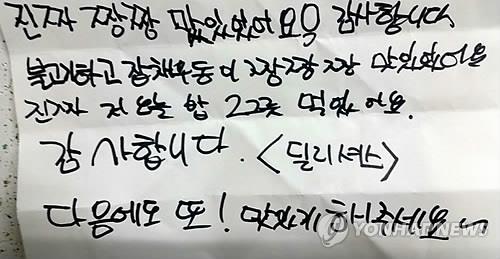 진짜 짱짱 맛있었어요 감사합니다.
불고기하고 잡채우동이 짱짱 짱 맛있었어요
진짜 저 오늘 밥 2그릇 먹었어요.
감사합니다. <딜리셔스>
다음에도 또! 맛있게 해주세요
YONHAP NEWS